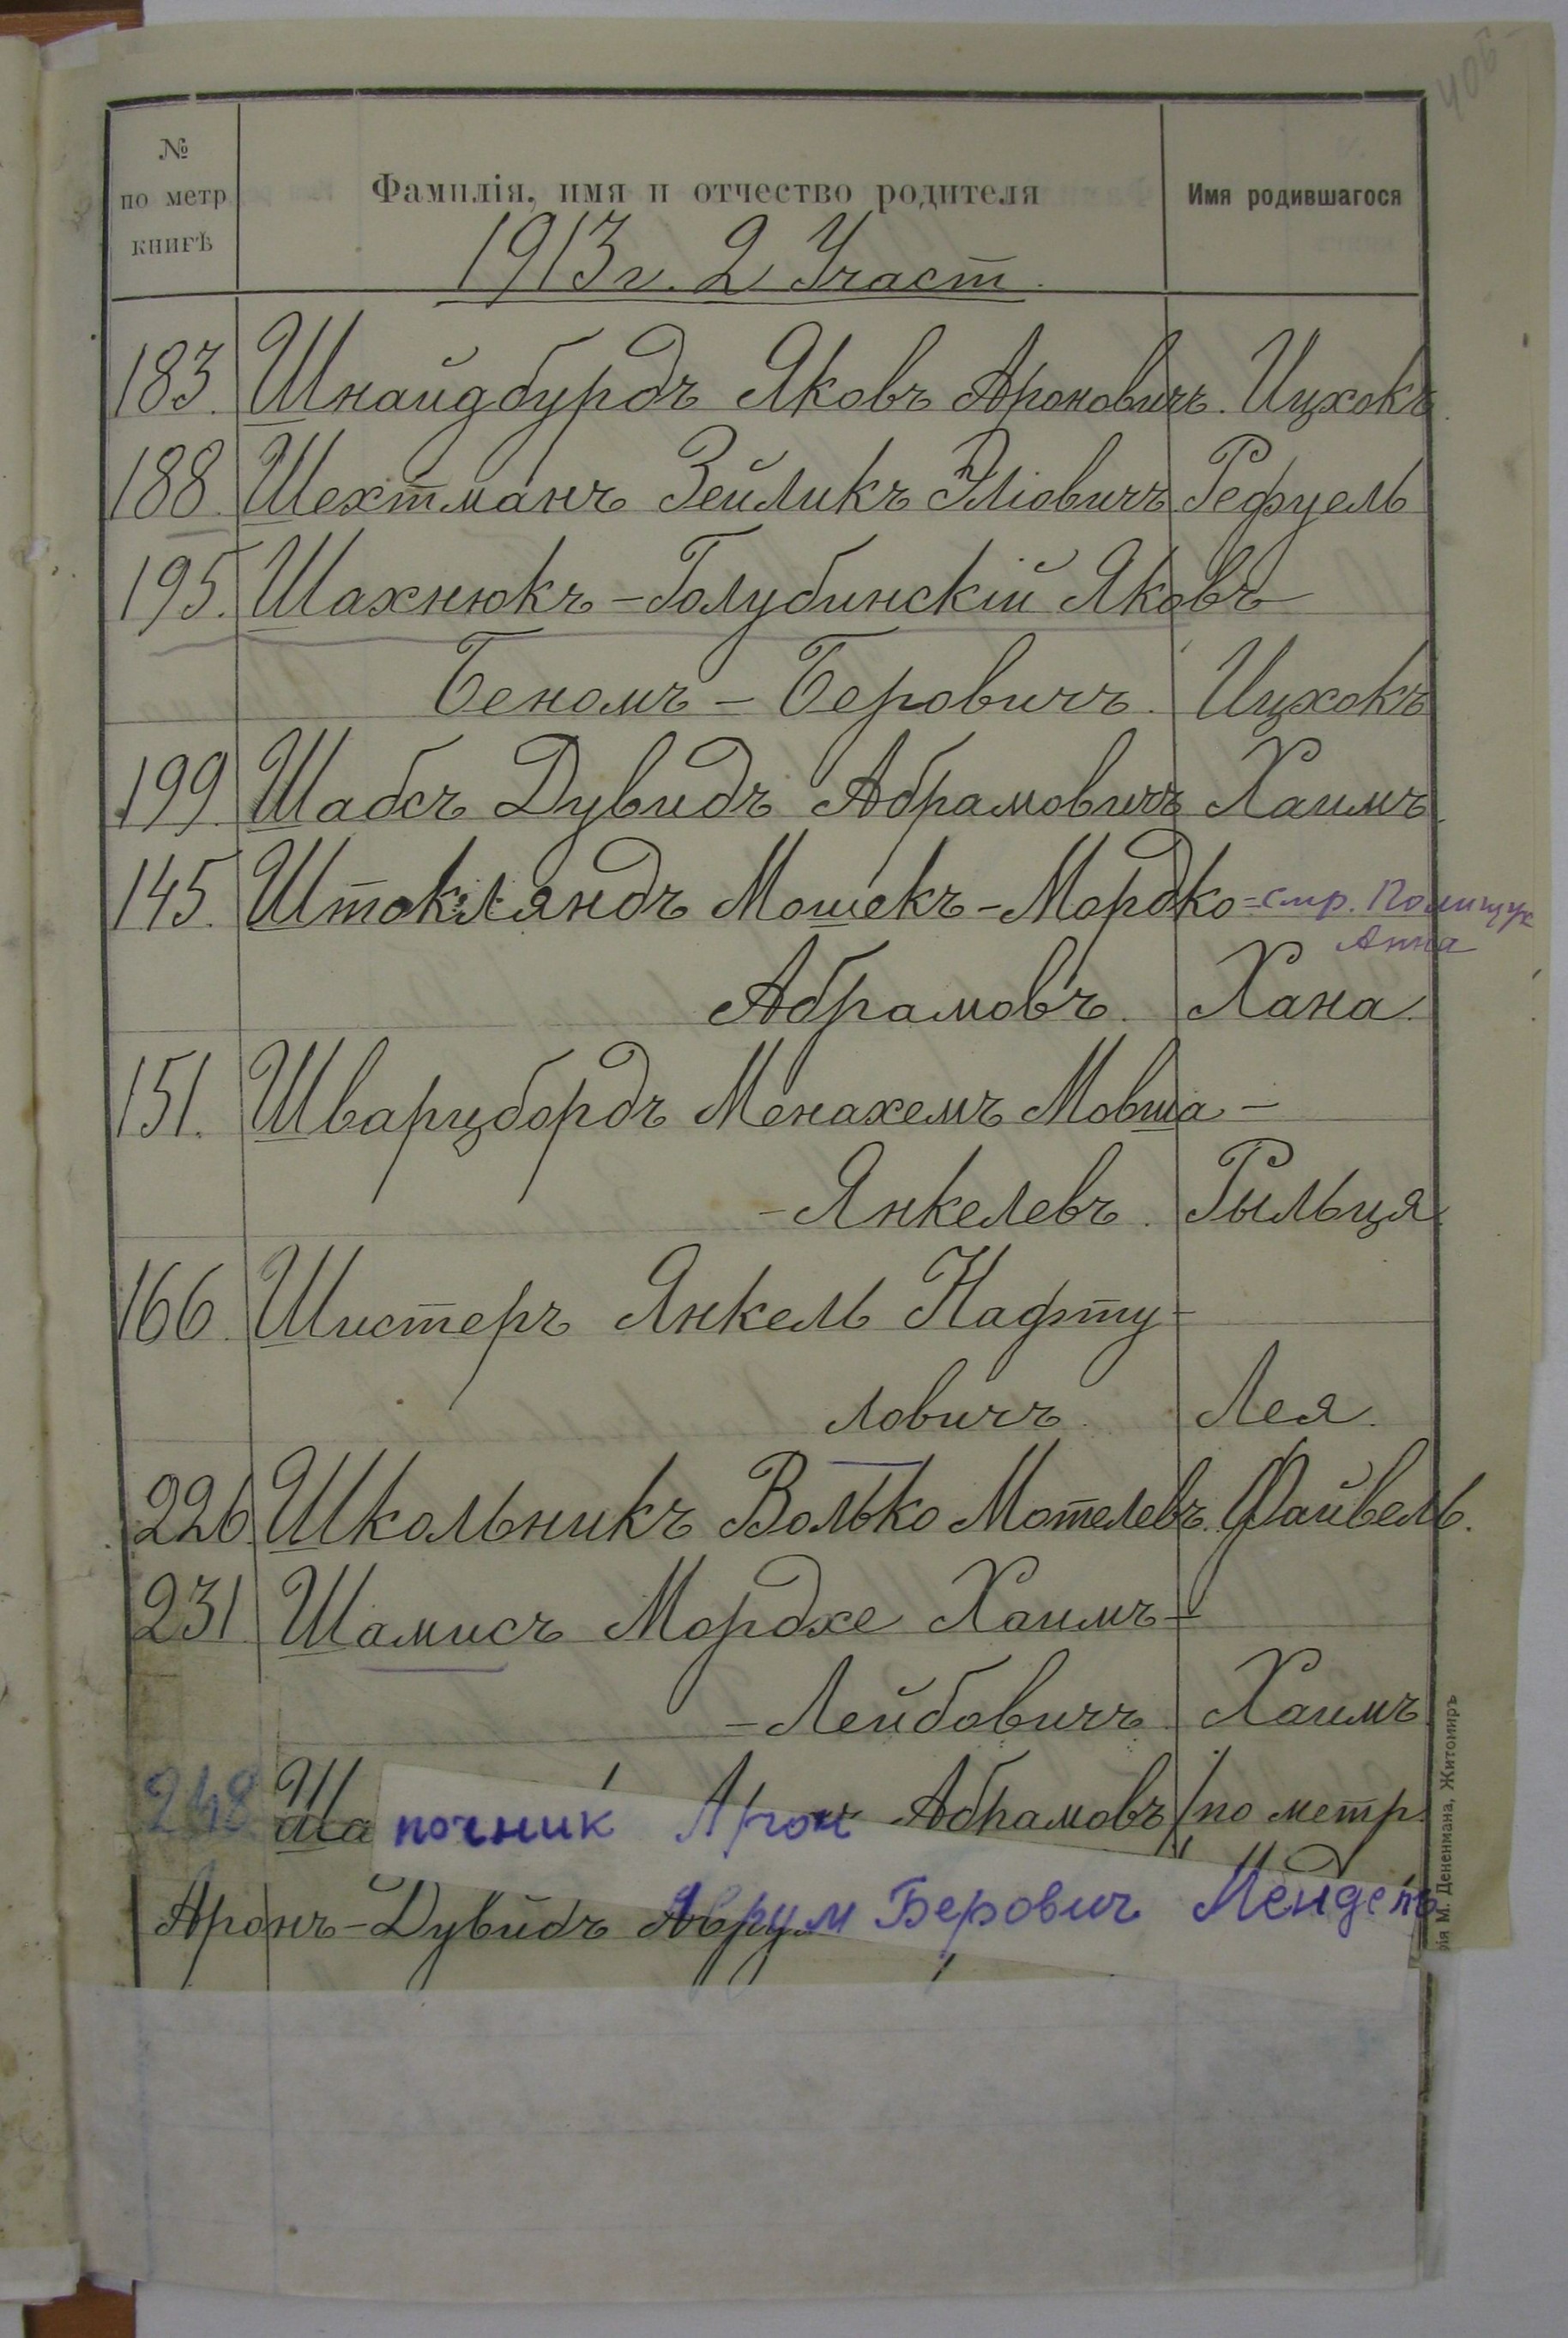 № по метр книгѣ
Фамилія, имя и отчество родителя
Имя родившагося
1913 г. 2 Участ.
183. Шнайдбурдъ Яковъ Ароновичъ. Ицхокъ.
188. Шехтманъ Зейликъ Эліовичъ Рефуель
195. Шахнюкъ-Голубинскій Яковъ
Беномъ-Беровичъ. Ицхокъ
199. Шабсъ Дувидъ Абрамовичъ Хаимъ.
145. Штокляндъ Мошекъ-Мордко =смр. Полищук
Анна
Абрамовъ. Хана.
151. Шварцбордъ Менахемъ Мовша-
-Янкелевъ. Рыльця.
166. Шистеръ Янкель Нафту-
ловичъ. Лея.
226. Школьникъ Волько Мотелевъ. Файвель.
231 Шамисъ Мордхе Хаимъ-
-Лейбовичъ. Хаимъ.
248 Шапочник Арон Абрамовъ/по метр.
Аронъ-Дувидъ Аврум Берович Мендель
М. Дененмана, Житомиръ